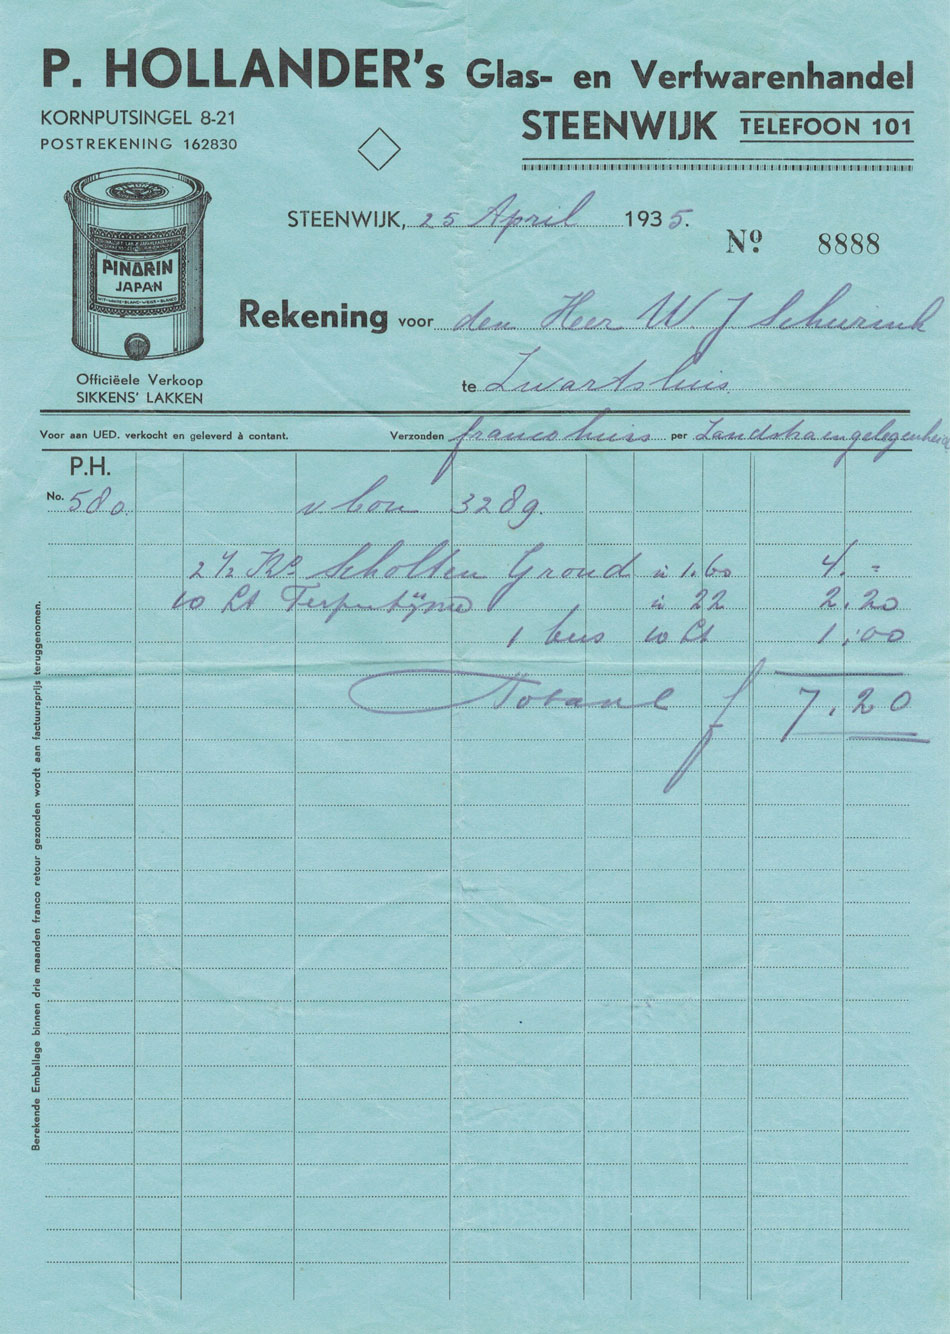 P. HOLLANDER's Glas- en Verfwarenhandel
KORNPUTSINGEL 8-21
POSTREKENING 162830
STEENWIJK TELEFOON 101
STEENWIJK, 25 April 1935.
No 8888
PINARIN
JAPAN
Rekening voor den Heer W. J Schurink
te Zwartsluis
Officiëele Verkoop
SIKKENS' LAKKEN
Voor aan UED. verkocht en geleverd à contant.
Verzonden franco huis per
P.H.
No. 580
v bon 3289.
2 1/2 Ko Scholten Grond à 1.60 4.-
10 Lt Terpentijn à 22 2.20
1 bus 10 Lt 1,00
Totaal f 7.20
Berekende Emballage binnen drie maanden franco retour gezonden wordt aan factuursprijs teruggenomen.